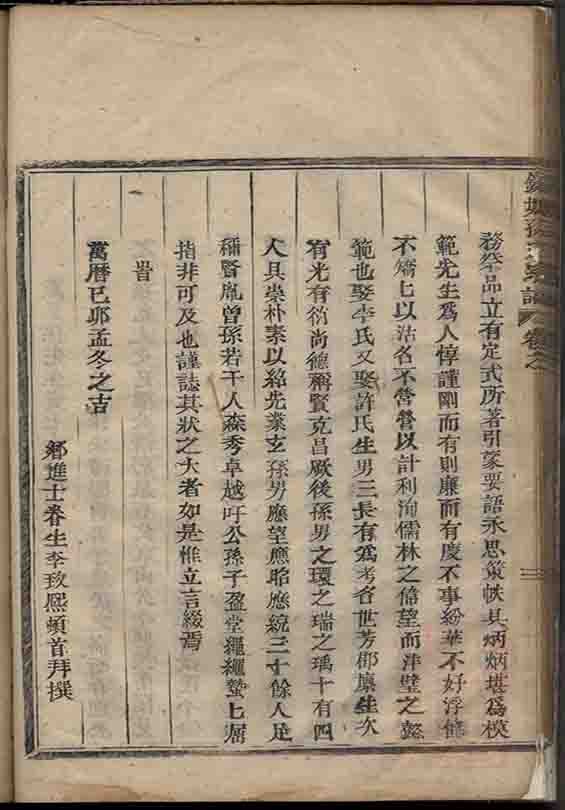 務祭品立有定式所著引蒙要語永思策帙具炳炳堪為模
範先生為人惇謹剛而有則廉而有度不事紛華不好浮
不矯七以沽名不營營以計利洵儒林之偹望而泮璧之
範也娶李氏又娶許氏生男三長有為考名世芳郡廩生次
有光有尚德稱賢克昌厥後孫男之環之瑞之瑀十有四
人具崇朴素以紹先業玄孫男應望應昭應統三十餘人足
稱賢胤曾孫若干人森秀卓越吁公孫子盈堂繩繩蟄七
指非可及也謹誌其狀之大者如是惟立言綴焉
旹
萬曆己卯孟冬之吉
鄉進士眷生李玫熈頓首拜撰
宗譜
卷之